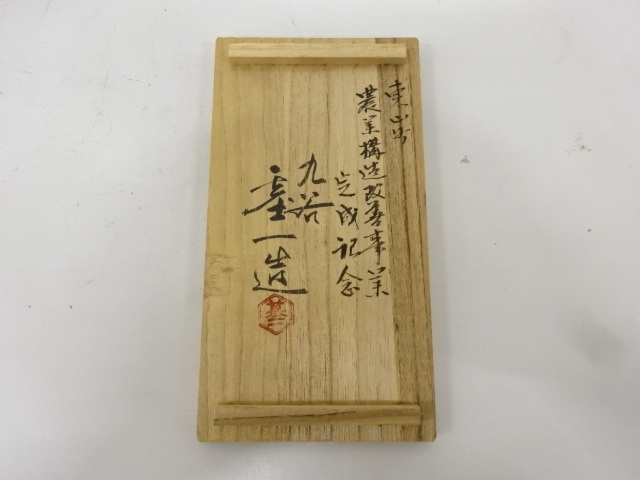 農業構造改善事業
完成記念
九谷
一造